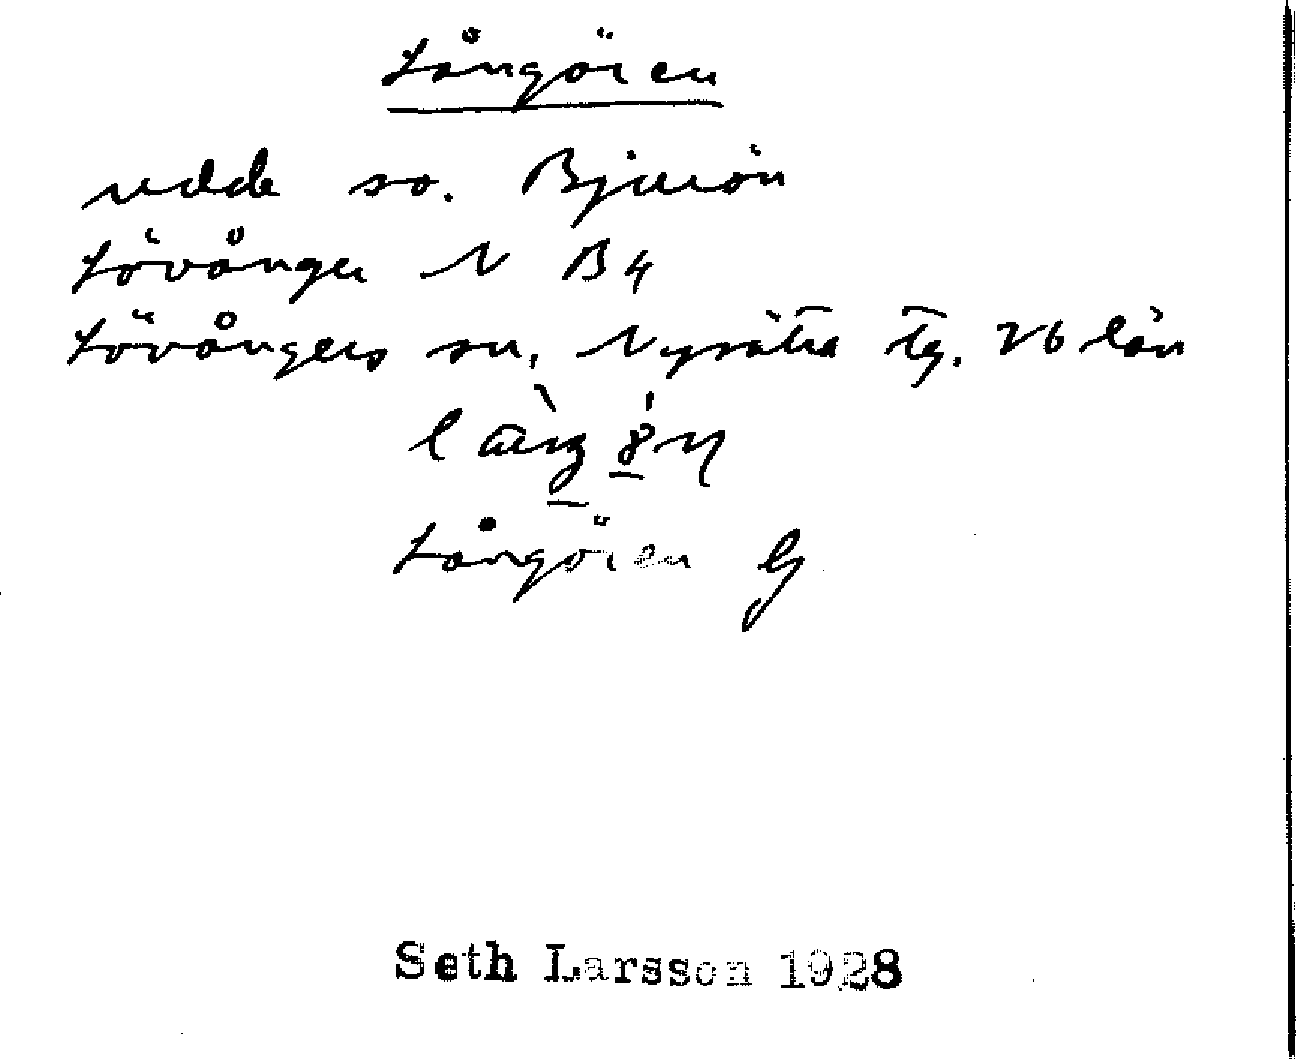 Långören
udde so. Bjurön
Lövånger N B4
Lövångers sn, Nysätra tg. Vb län
Långören G
Seth Larsson 1928